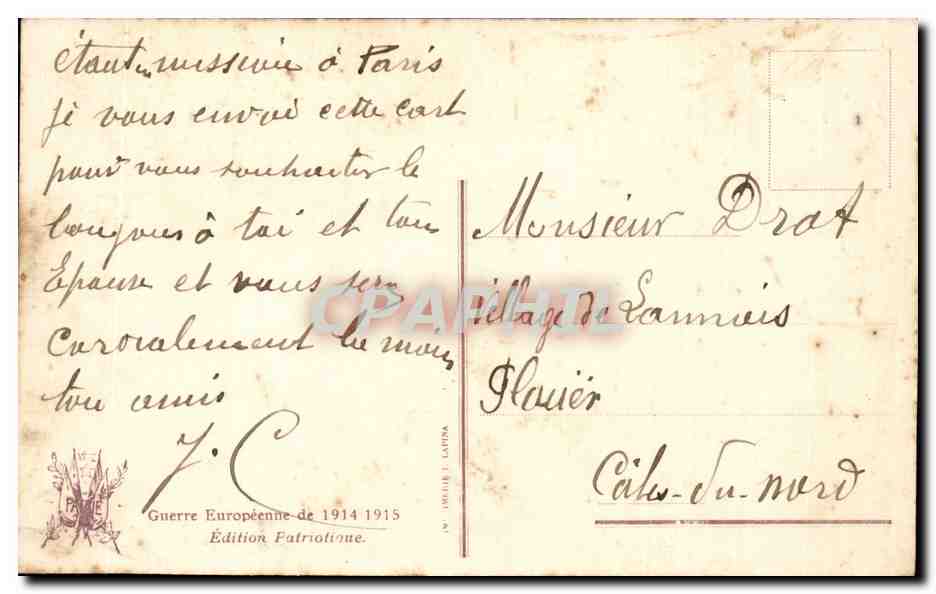 étant en missioin à Paris
je vous envoi cette cart
pour vous souhaiter le
bonjour à toi et ton
Epouse et vous serz
Cordialement les mains
ton amis
J. C
Guerre Européenne de 1914 1915
Édition Patriotique.
LAPINA
Monsieur Drot
Village de Lannois
Plouër
Côtes-du-Nord
CPAPHIL